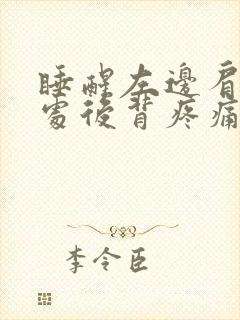 睡醒左邊肩
處後背疼痛
李令臣